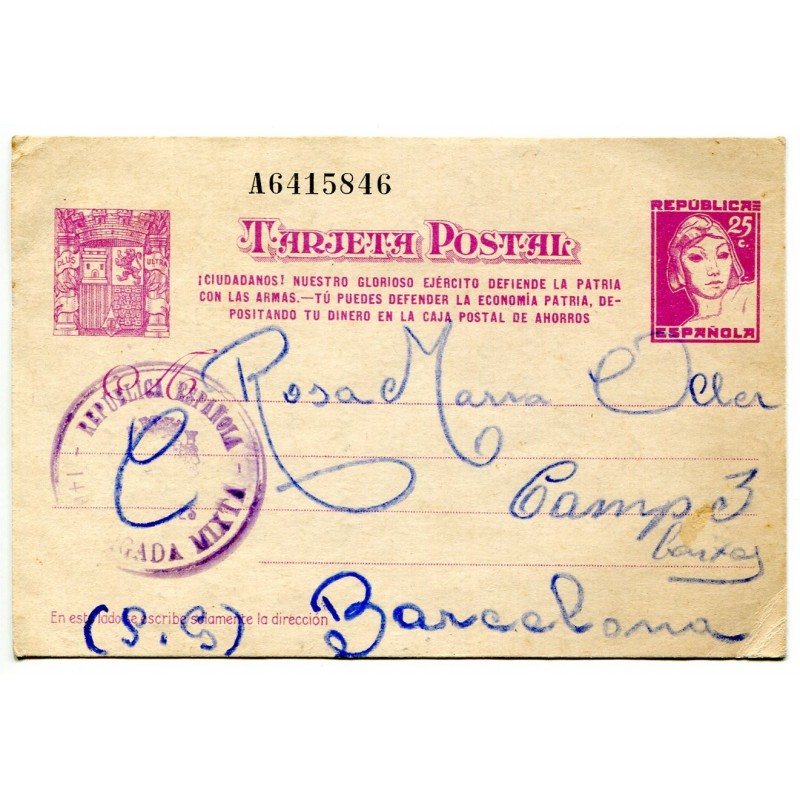 A6415846
PLUS ULTRA
TARJETA POSTAL
REPÚBLICA
25 c.
ESPAÑOLA
¡CIUDADANOS! NUESTRO GLORIOSO EJÉRCITO DEFIENDE LA PATRIA
CON LAS ARMAS.—TÚ PUEDES DEFENDER LA ECONOMÍA PATRIA, DE-
POSITANDO TU DINERO EN LA CAJA POSTAL DE AHORROS
REPÚBLICA ESPAÑOLA
GADA MIXTA
Rosa Maria
Camp 3
baixos
En este lado se escribe solamente la dirección
(S.G)
Barcelona